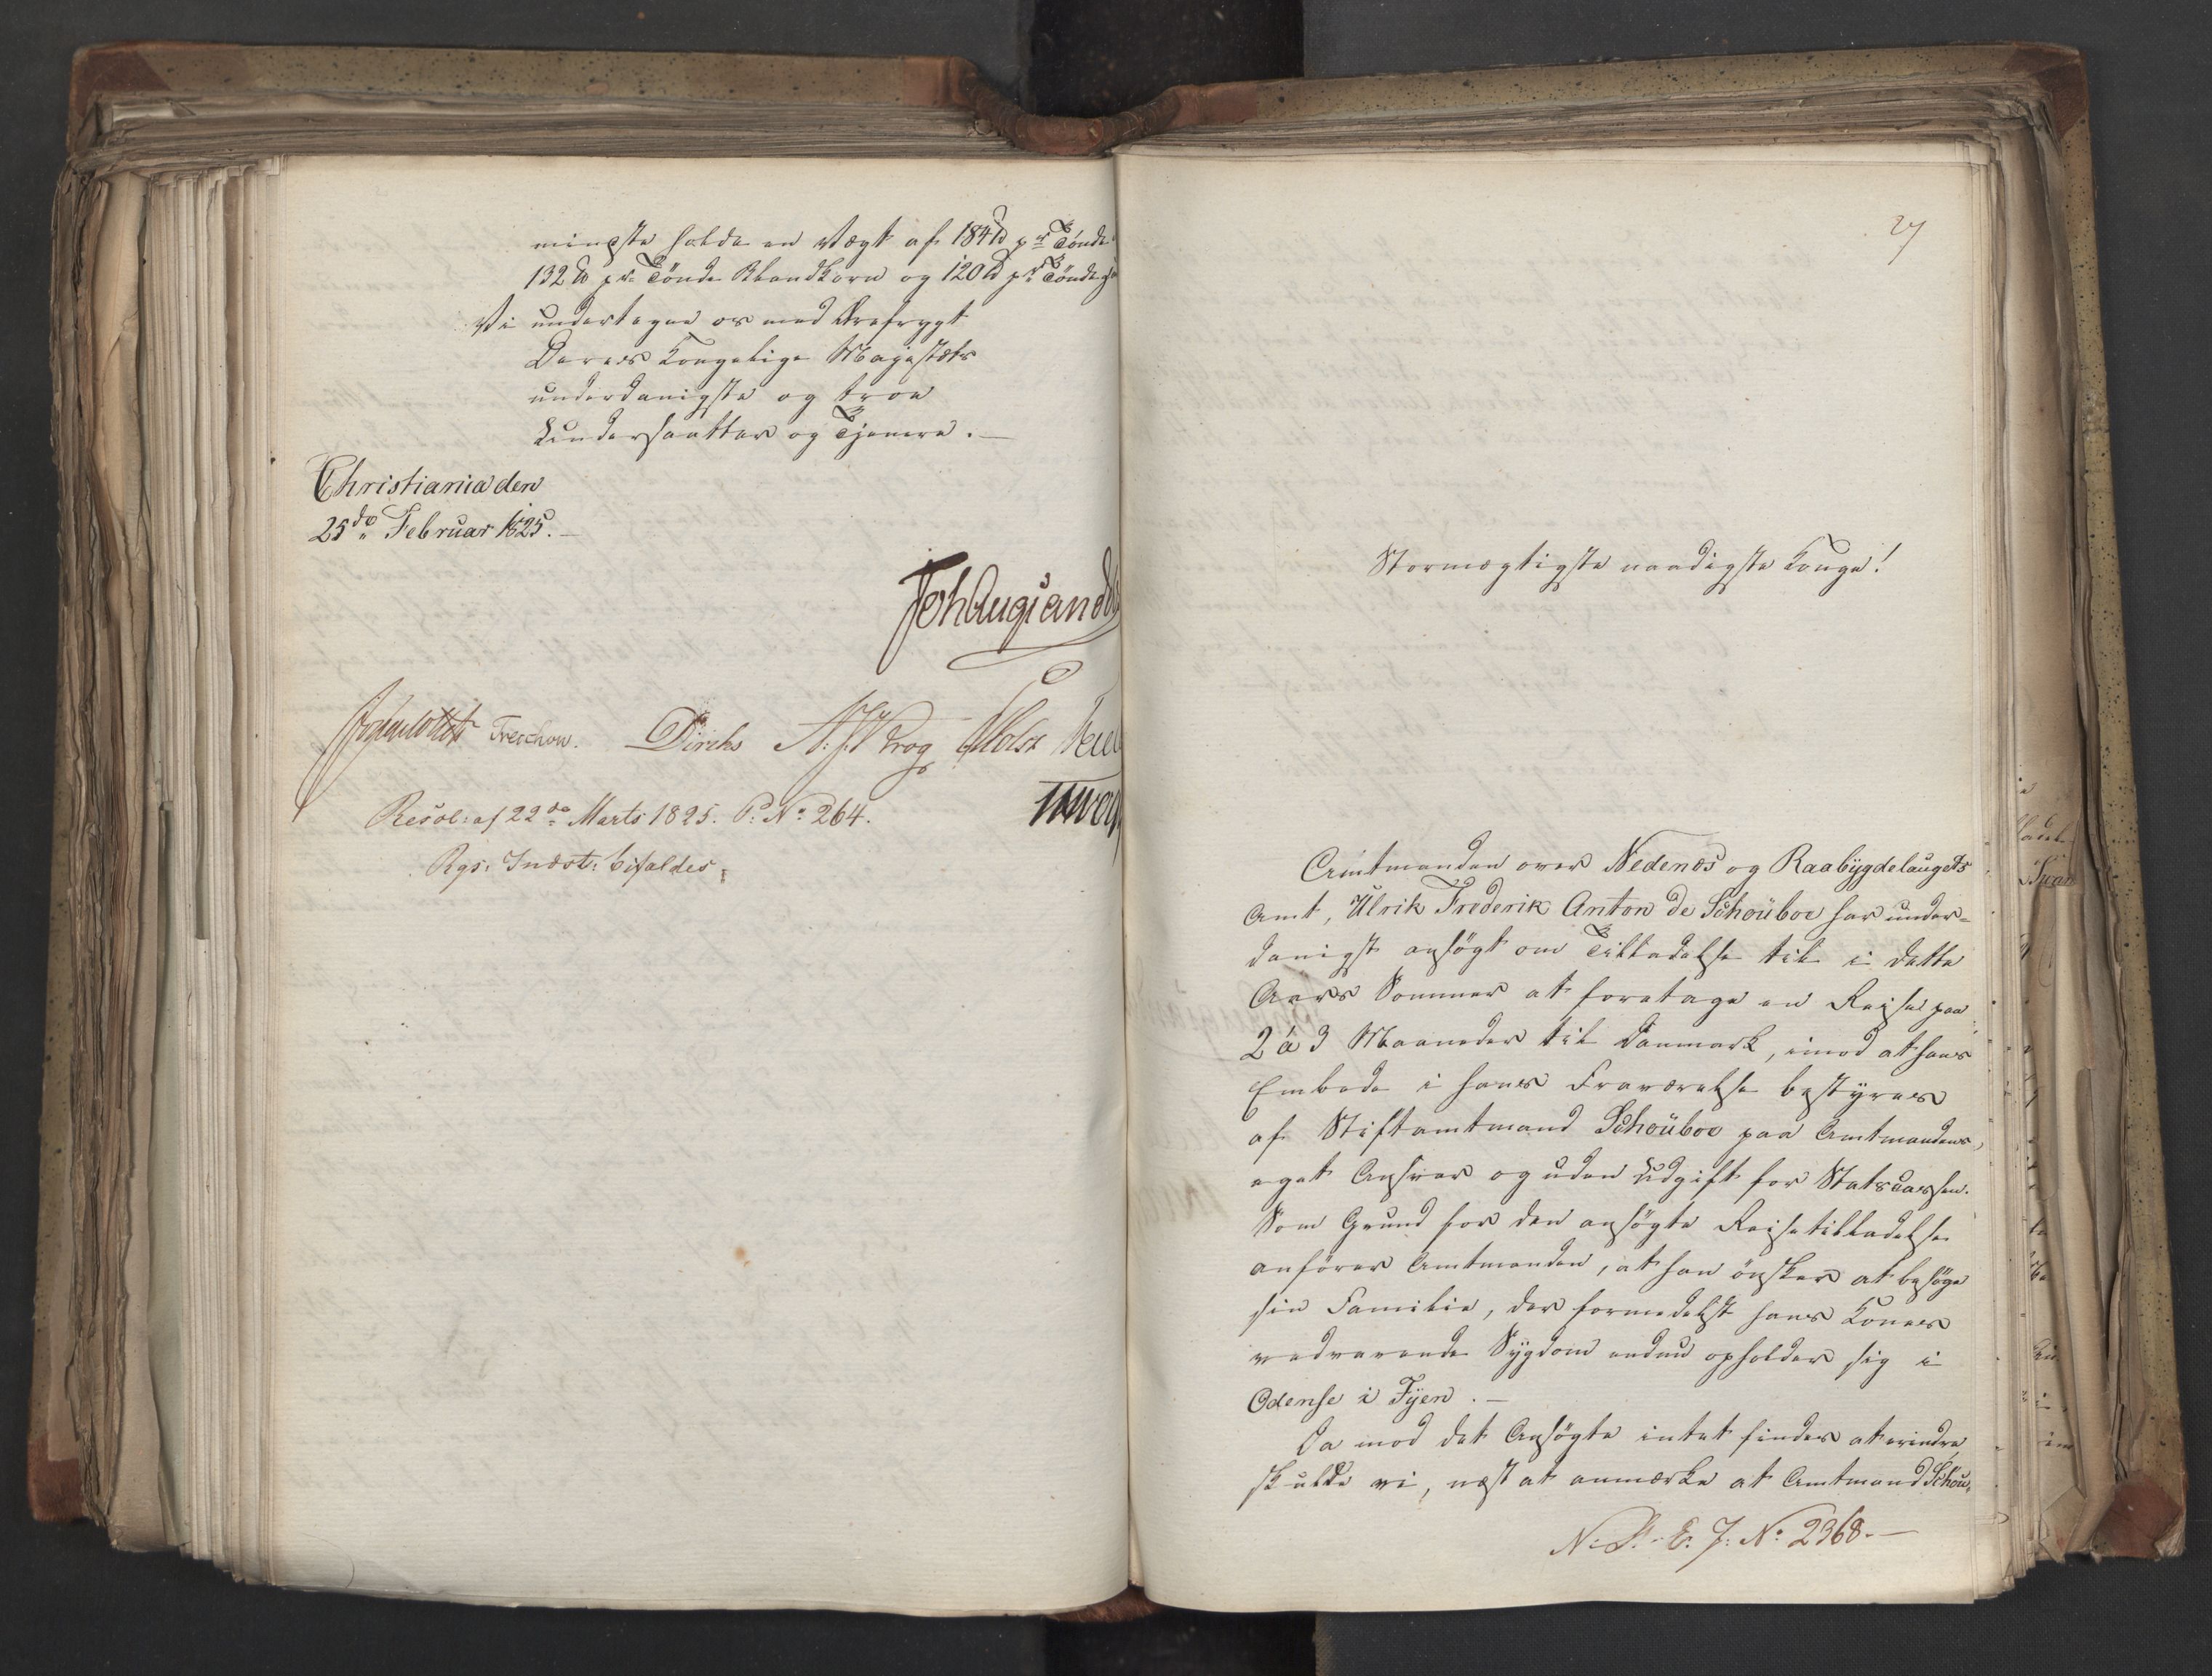 mindste holde en Vægt af 184 ℔ pr Tønde
132 ℔ pr Tønde Blandkorn og 120 ℔ pr Tønde
Vi undertegne os med Ærefrygt
Deres Kongelige Majestæts
underdanigste og troe
Undersaatter og Tjenere. —
Christiania den
25de Februar 1825. —
Joh Aug Sand
Treschow. Diriks A. J. Krog PMotz
Resol: af 22de Marts 1825. P: No 264.
Rgs: Indst: bifaldes.
27
Stormægtigste naadigste Konge!
Amtmanden over Nedenæs og Raabygdelaugets
Amt, Ulrik Frederik Anton de Schouboe har under-
danigst ansøgt om Tilladelse til i dette
Aars Sommer at foretage en Reise paa
2 à 3 Maaneder til Danmark, imod at hans
Embede i hans Fraværelse bestyres
af Stiftamtmand Schouboe paa Amtmandens
eget Ansvar og uden Udgift for Statscassen.
Som Grund for den ansøgte Reisetilladelse
anfører Amtmanden, at han ønsker at besøge
sin Familie, der formedelst hans Kones
vedvarende Sygdom endnu opholder sig i
Odense i Fyen. —
Da mod det Ansøgte intet findes at erindre
skulde vi, næst at anmærke at Amtmand Schou-
N: R: E. J: No 2368. —